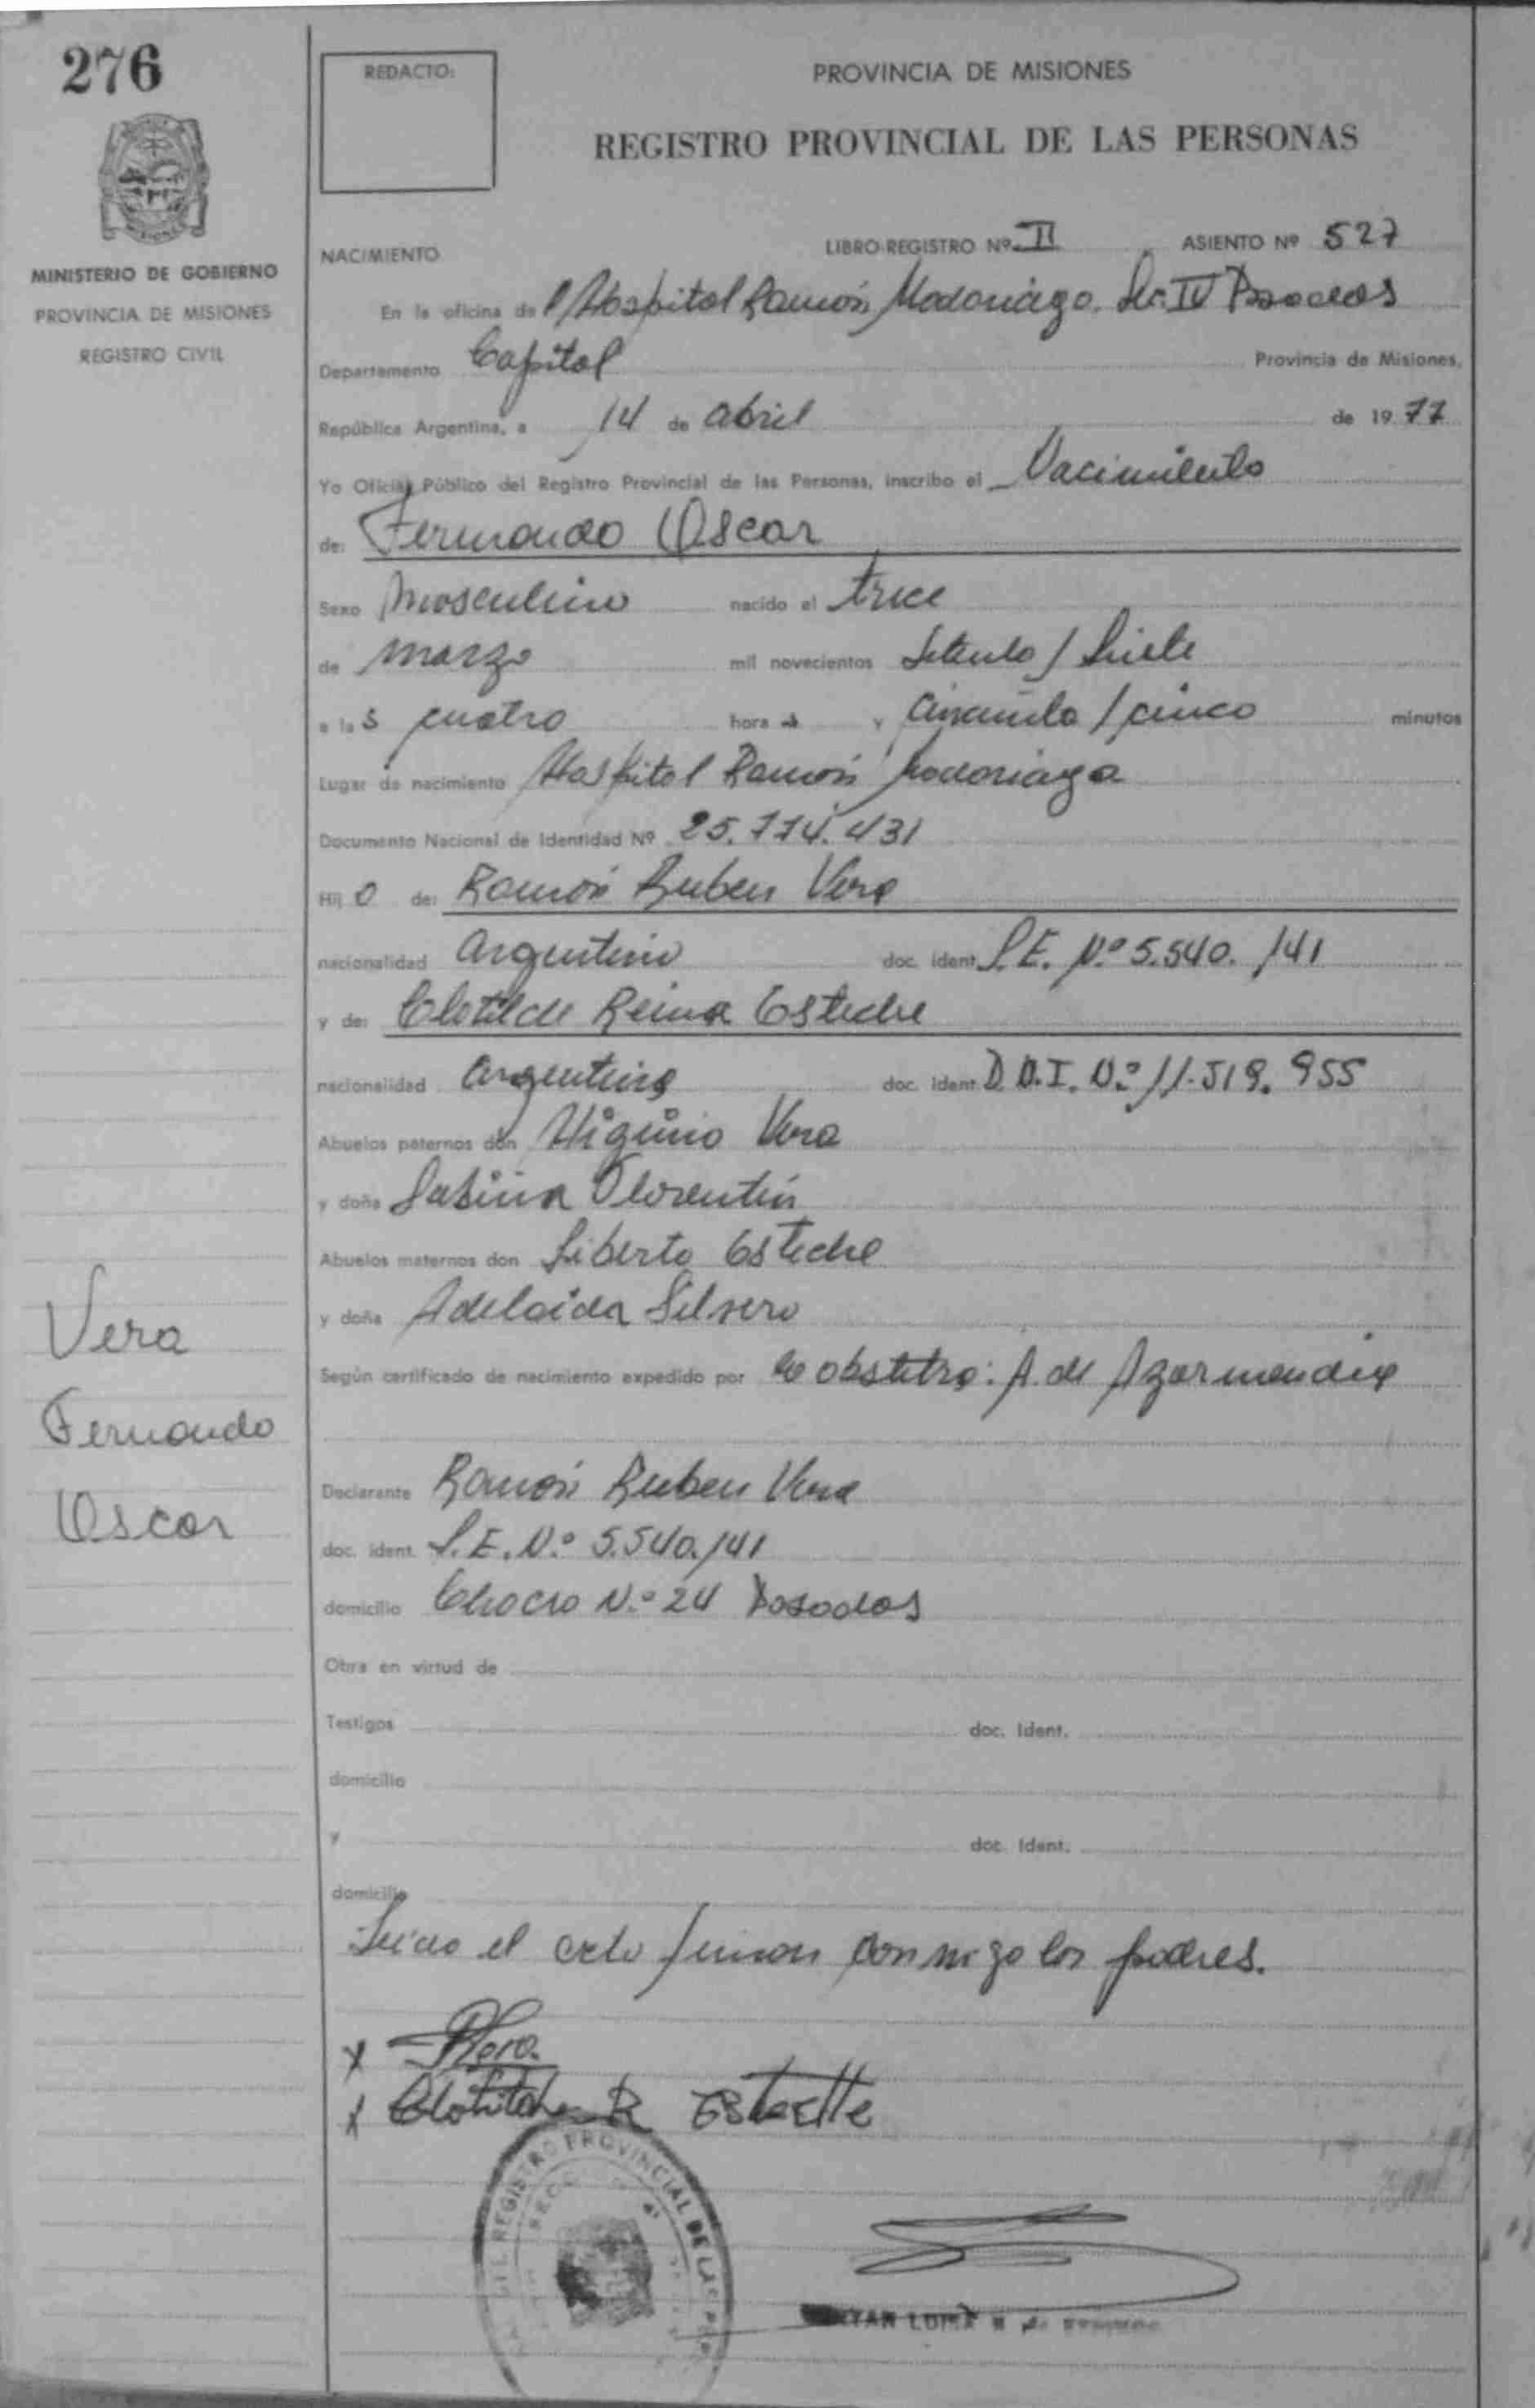 276
REDACTO:
PROVINCIA DE MISIONES
REGISTRO PROVINCIAL DE LAS PERSONAS
MINISTERIO DE GOBIERNO
PROVINCIA DE MISIONES
REGISTRO CIVIL
NACIMIENTO LIBRO-REGISTRO Nº II ASIENTO Nº 527
En la oficina del Hospital Ramón Madariaga. Sec. IV Posadas
Departamento Capital Provincia de Misiones,
República Argentina, a 14 de abril de 1977
Yo Oficial Público del Registro Provincial de las Personas, inscribo el Nacimiento
de: Fernando Oscar
Sexo Masculino nacido el trece
de marzo mil novecientos Setenta / Siete
a las cuatro hora y Cincuenta / cinco minutos
Lugar de nacimiento Hospital Ramón Madariaga
Documento Nacional de Identidad Nº 25.774.431
Hijo de: Ramón Ruben Vera
nacionalidad argentino doc. ident. L.E. Nº 5.540.141
y de: Clotilde Reina Esteche
nacionalidad argentina doc. ident. D.N.I. Nº 11.519.955
Abuelos paternos don Higinio Vera
y doña Sabina Florentín
Abuelos maternos don Liberto Esteche
y doña Adelaida Silvero
Según certificado de nacimiento expedido por la obstetra: A. de Azarmendia
Declarante Ramón Ruben Vera
doc. ident. L.E. Nº 5.540.141
domicilio Chacra Nº 24 Posadas
Obra en virtud de
Testigos doc. Ident.
domicilio
y doc. Ident.
domicilio
Leido el acta firman conmigo los padres.
Vera
Fernando
Oscar
x RVera.
x Clotilde R Esteche
REGISTRO PROVINCIAL DE LAS